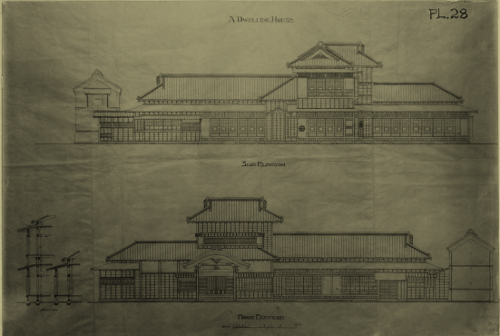 A DWELLING HOUSE.
PL.28
SIDE ELEVATION
FRONT ELEVATION